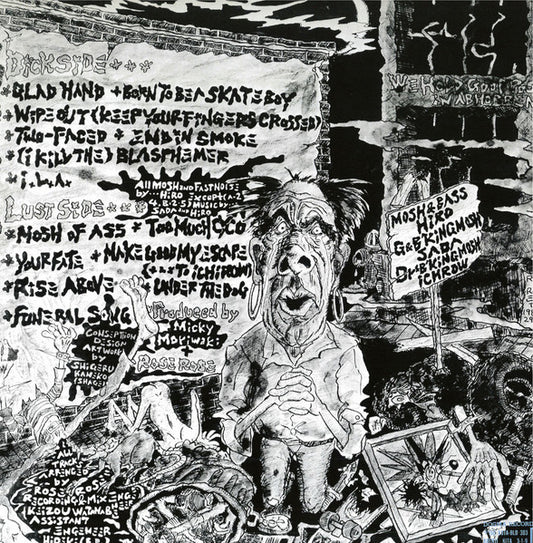 DICKSIDE***
*GLAD HAND +BORN TO BE A SKATE BOY
*WIPE OUT (KEEP YOUR FINGERS CROSSED)
*TWO-FACED + END IN SMOKE
*(I KILL THE) BLASPHEMER
*I.L.A.
All MOSH AND FAST NOISE
by... HIRO EXCEPT (A-2
MUSIC by
SADA AND HIRO
LUST SIDE***
*MOSH OF ASS * TOO MUCH
*YOUR FATE + MAKE GOOD MY ESCAPE
(+++TO ICHIROW)
*RISE ABOVE +UNDER THE DOG
*FUNERAL SONG
Produced by
Micky
Moriwaki
+
ROSE ROSE
CONSEPTION
DESIGN
ARTWORK
by
SHIGERU
KANEKO
MOSH & BASS
HIRO
G&BKING MOSH
SADA
D&BKING MOSH
ICHROW
WE HOLD
IN ABHORREN
ALL
TRACK
ARRENGED
by
ROSE ROSE
RECORDING & MIX-ENG
KEIZOU WATANABE
ASSISTANT
ENGENEER